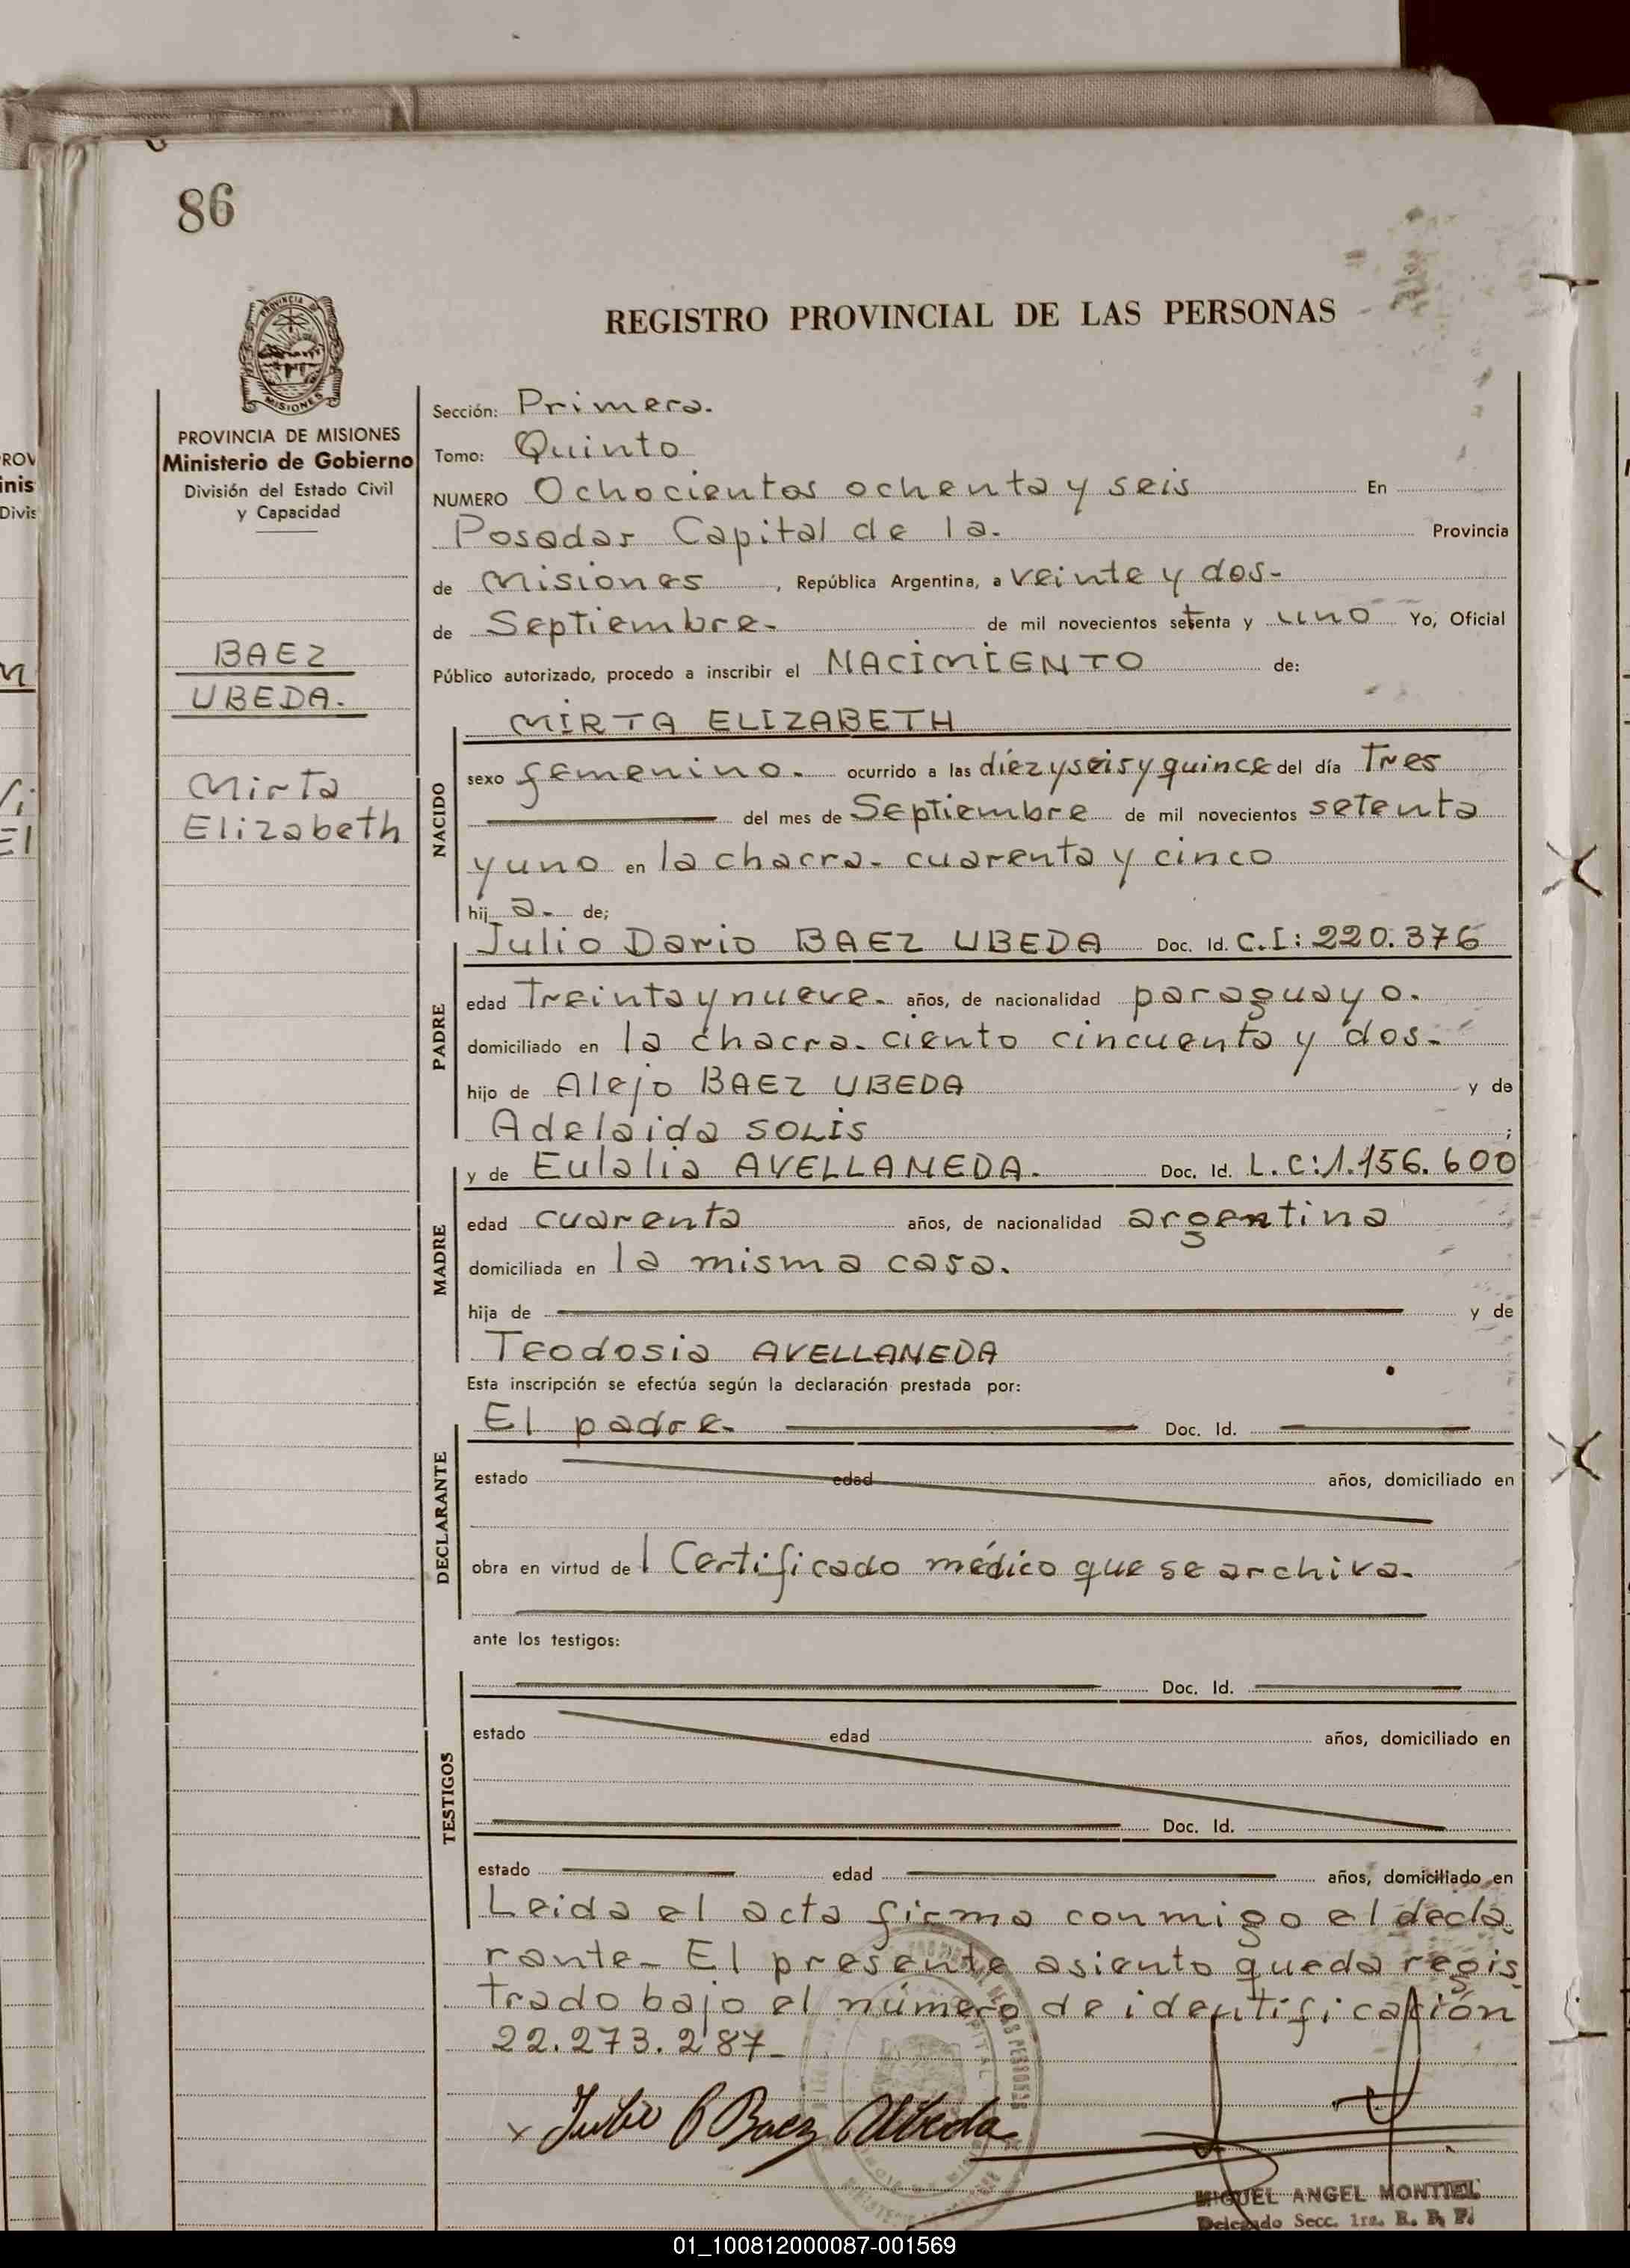 86
PROVINCIA
MISIONES
REGISTRO PROVINCIAL DE LAS PERSONAS
PROVINCIA DE MISIONES
Ministerio de Gobierno
División del Estado Civil
y Capacidad
BAEZ
UBEDA.
Mirta
Elizabeth
Sección: Primera.
Tomo: Quinto
NUMERO Ochocientos ochenta y seis En
Posadas Capital de la. Provincia
de Misiones, República Argentina, a veinte y dos-
de Septiembre- de mil novecientos setenta y uno Yo, Oficial
Público autorizado, procedo a inscribir el NACIMIENTO de:
NACIDO
MIRTA ELIZABETH
sexo femenino. ocurrido a las diez y seis y quince del día Tres
del mes de Septiembre de mil novecientos setenta
y uno en la chacra- cuarenta y cinco
hij a- de;
PADRE
Julio Dario BAEZ UBEDA Doc. Id. C.I: 220.376
edad Treinta y nueve- años, de nacionalidad paraguayo.
domiciliado en la chacra- ciento cincuenta y dos-
hijo de Alejo BAEZ UBEDA y de
Adelaida SOLIS ;
MADRE
y de Eulalia AVELLANEDA. Doc. Id. L.C:1.156.600
edad cuarenta años, de nacionalidad argentina
domiciliada en la misma casa.
hija de y de
Teodosia AVELLANEDA
Esta inscripción se efectúa según la declaración prestada por:
DECLARANTE
El padre- Doc. Id.
estado edad años, domiciliado en
obra en virtud del Certificado médico que se archiva-
ante los testigos:
TESTIGOS
Doc. Id.
estado edad años, domiciliado en
Doc. Id.
estado edad años, domiciliado en
Leida el acta firma conmigo el decla
rante- El presente asiento queda regis
trado bajo el número de identificación
22.273.287-
x Julio Baez Ubeda
MIGUEL ANGEL MONTIEL
Delegado Secc. 1ra. R. P. P.
01_100812000087-001569